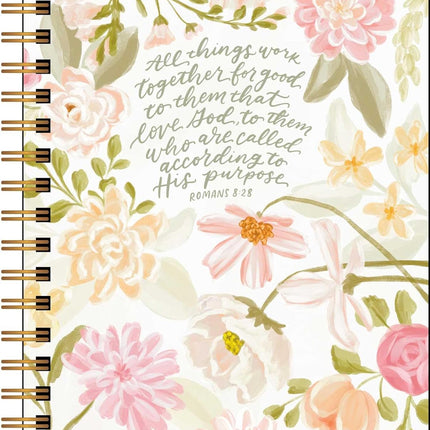 All things work
together for good
to them that
love God, to them
who are called
according to
His purpose
ROMANS 8:28